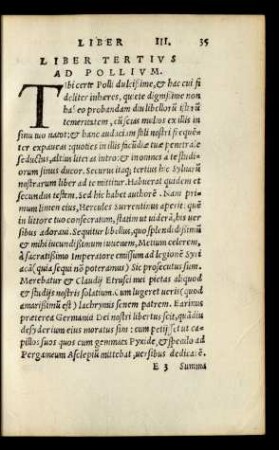 LIBER III. 35
LIBER TERTIVS
AD POLLIVM.
Tibi certe Polli dulcissime, & hac cui fi
deliter inhæres, quiete dignissime non
habeo probandam diu libellorũ istorũ
temeritatem, cũ scias multos ex illis in
sinu tuo natos: & hanc audaciam stili nostri frequẽ
ter expaueas: quoties in illis facũdiæ tuæ penetrale
seductus, altius literas intro: & in omnes a te studio
rum sinus ducor. Securus itaq; tertius hic Syluarũ
nostrarum liber ad te mittitur. Habuerat quidem et
secundus testem, Sed hic habet authorẽ. Nam pri=
mum limen eius, Hercules Surrentinus aperit: quẽ
in littore tuo consecratum, statim ut uiderã, his uer
sibus adoraui. Sequitur bbellus, quo splendidissimũ
& mihi iucundissimum iuuenem, Metium celerem,
à sacratissimo Imperatore emissum ad legionẽ Syri
acã(quia sequi nõ poteramus) Sic prosecutus sum.
Merebatur & Claudij Etrusci mei pietas aliquod
& studijs nostris solatium. Cum lugeret ueris( quod
amarissimũ est) lachrymis senem patrem. Earinus
præterea Germanici Dei nostri libertus scit, quãdiu
desyderium eius moratus sim: cum petijsset ut ca
pillos suos quos cum gemmata Pyxide, & speculo ad
Pergameum Asclepiũ mittebat, uersibus dedicarẽ.
E 3 Summa